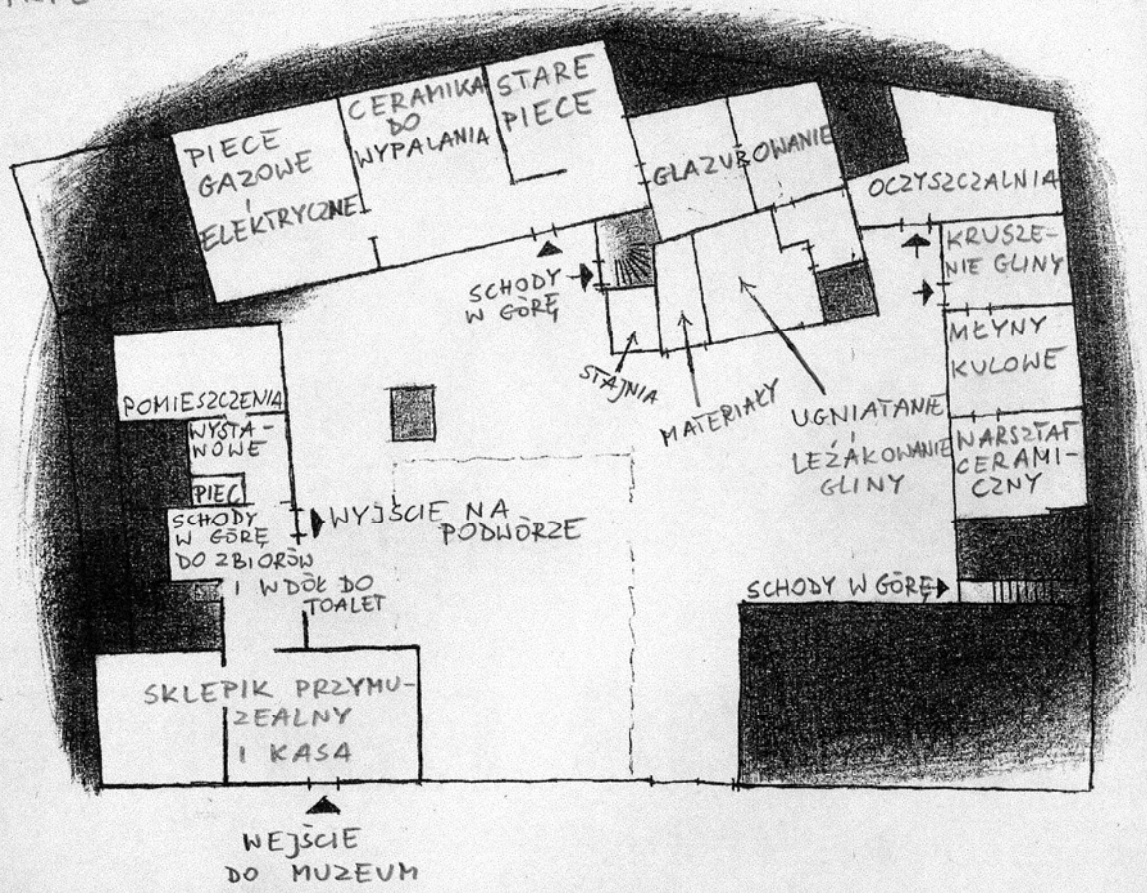 PIECE
GAZOWE
I
ELEKTRYCZNE
CERAMIKA
DO
WYPALANIA
STARE
PIECE
GLAZUROWANIE
OCZYSZCZALNIA
KRUSZE-
NIE GLINY
MŁYNY
KULOWE
WARSZTAT
CERAMI-
CZNY
SCHODY
W GÓRĘ
STAJNIA
MATERIAŁY
UGNIATANIE
I
LEŻAKOWANIE
GLINY
POMIESZCZENIA
WYSTA-
WOWE
PIEC
SCHODY
W GÓRĘ
DO ZBIORÓW
I W DÓŁ DO
TOALET
WYJŚCIE NA
PODWÓRZE
SCHODY W GÓRĘ
SKLEPIK PRZYMU-
ZEALNY
I KASA
WEJŚCIE
DO MUZEUM